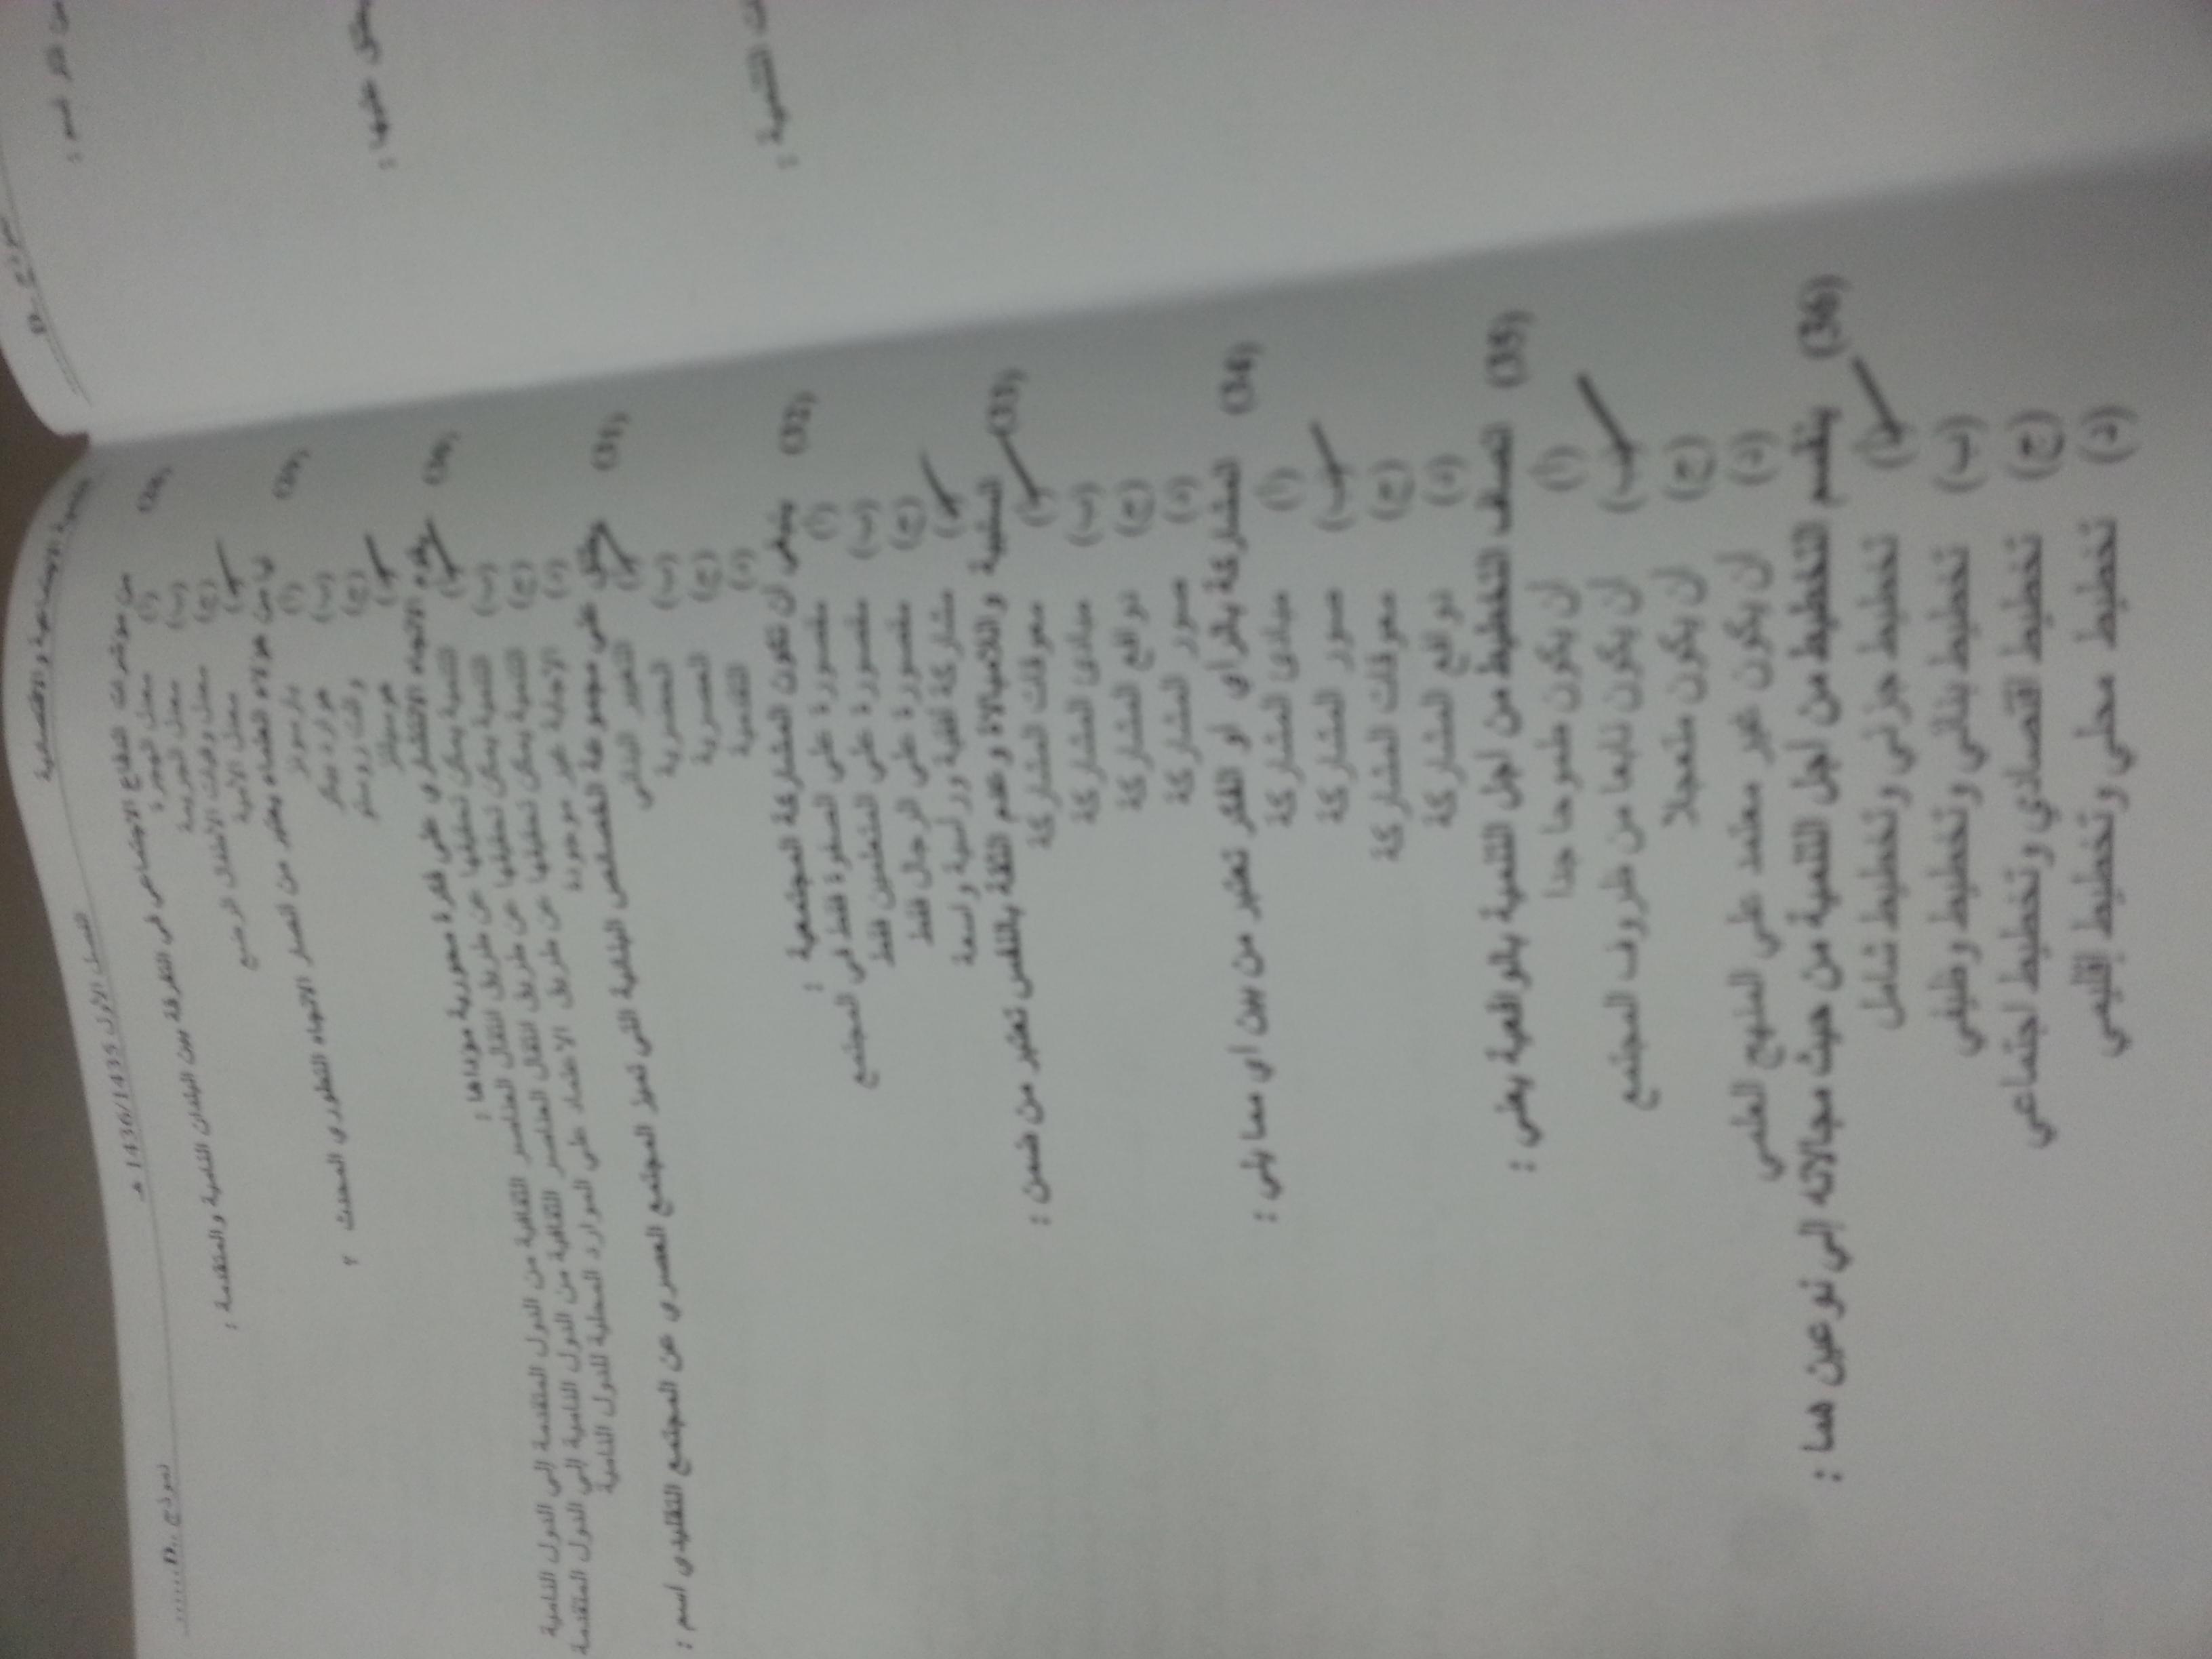 التنمية الاجتماعية والاقتصادية
الفصل الأول 1436/1435 هـ
نموذج D
(28) من مؤشرات القطاع الاجتماعي في التفرقة بين البلدان النامية والمتقدمة :
(أ) معدل الهجرة
(ب) معدل الجريمة
(ج) معدل وفيات الأطفال الرضع
(د) معدل الأمية
(29) أيا من هؤلاء العلماء يعتبر من أنصار الاتجاه التطوري المحدث ؟
(أ) بارسونز
(ب) هوارد بيكر
(ج) والت روستو
(د) هوسيلتز
(30) يقوم الاتجاه الانتشاري على فكرة محورية مؤداها :
(أ) التنمية يمكن تحقيقها عن طريق انتقال العناصر الثقافية من الدول المتقدمة إلى الدول النامية
(ب) التنمية يمكن تحقيقها عن طريق انتقال العناصر الثقافية من الدول النامية إلى الدول المتقدمة
(ج) التنمية يمكن تحقيقها عن طريق الاعتماد على الموارد المحلية للدول النامية
(د) الإجابة غير موجودة
(31) يطلق على مجموعة الخصائص البنائية التي تميز المجتمع العصري عن المجتمع التقليدي اسم :
(أ) التغير البنائي
(ب) الحضرية
(ج) العصرية
(د) التقدمية
(32) ينبغي أن تكون المشاركة المجتمعية :
(أ) مقصورة على الصفوة فقط في المجتمع
(ب) مقصورة على المتعلمين فقط
(ج) مقصورة على الرجال فقط
(د) مشاركة أفقية ورأسية واسعة
(33) السلبية واللامبالاة وعدم الثقة بالنفس تعتبر من ضمن :
(أ) معوقات المشاركة
(ب) مبادئ المشاركة
(ج) دوافع المشاركة
(د) صور المشاركة
(34) المشاركة بالرأي أو الفكر تعتبر من بين أي مما يلي :
(أ) مبادئ المشاركة
(ب) صور المشاركة
(ج) معوقات المشاركة
(د) دوافع المشاركة
(35) اتصاف التخطيط من أجل التنمية بالواقعية يعني :
(أ) أن يكون طموحا جدا
(ب) أن يكون نابعا من ظروف المجتمع
(ج) أن يكون متعجلا
(د) أن يكون غير معتمد على المنهج العلمي
(36) ينقسم التخطيط من أجل التنمية من حيث مجالاته إلى نوعين هما :
(أ) تخطيط جزئي وتخطيط شامل
(ب) تخطيط بنائي وتخطيط وظيفي
(ج) تخطيط اقتصادي وتخطيط اجتماعي
(د) تخطيط محلي وتخطيط إقليمي